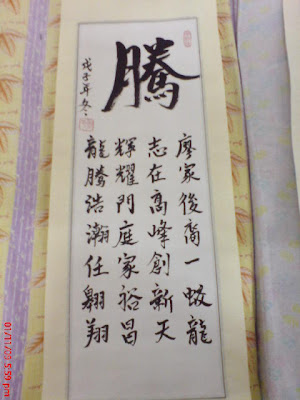 騰
戊子年冬
廖家後裔一蛟龍
志在高峰創新天
輝耀門庭家裕昌
龍騰浩瀚任翱翔
01/11/08 5:59 pm